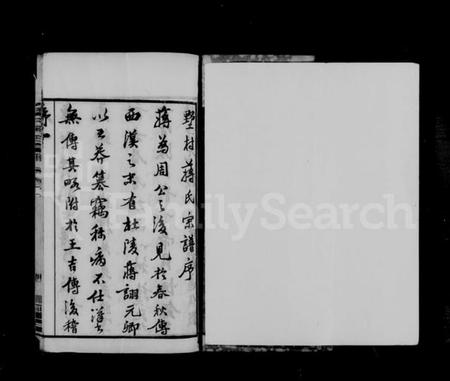 野村蔣氏宗譜序
蔣為周公之後見於春秋傳
西漢之末有杜陵蔣詡元卿
以王莽篡竊稱病不仕漢書
無傳其略附於王吉傳後稽
序
FamilySearch